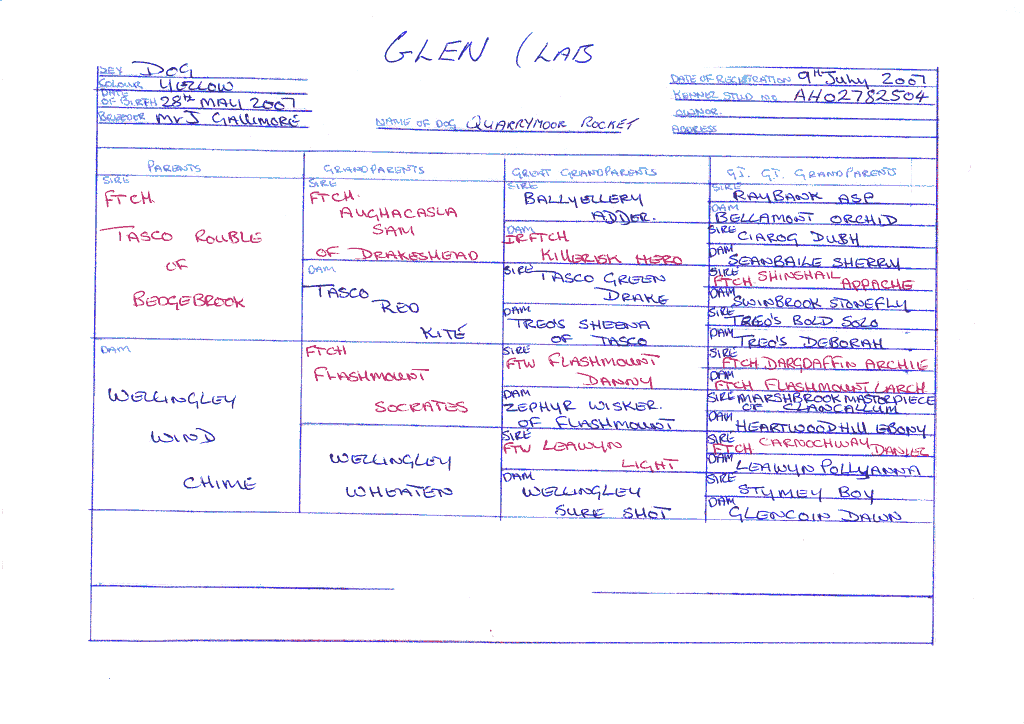 GLEN (LAB
SEX DOG
COLOUR YELLOW
DATE OF BIRTH 28th MAY 2007
BREEDER Mr J GALLIMORE
NAME OF DOG QUARRYMOOR ROCKET
DATE OF REGISTRATION 9th July 2007
KENNEL STUD NO AH02782504
OWNER
ADDRESS
PARENTS
SIRE
FTCH.
TASCO ROUBLE
OF
BEDGEBROOK
DAM
WELLINGLEY
WIND
CHIME
GRANDPARENTS
SIRE
FTCH.
AUGHACASLA
SAM
OF DRAKESHEAD
DAM
TASCO
RED
KITE
FTCH
FLASHMOUNT
SOCRATES
WELLINGLEY
WHEATEN
GREAT GRANDPARENTS
SIRE
BALLYELLERY
ADDER.
DAM
IRFTCH
KILLERISK HERO
SIRE TASCO GREEN
DRAKE
DAM
TREO'S SHEENA
OF TASCO
SIRE
FTW FLASHMOUNT
DANNY
DAM
ZEPHYR WISKER.
OF FLASHMOUNT
SIRE
FTW LEAWYN
LIGHT
DAM
WELLINGLEY
SURE SHOT
GT. GT. GRANDPARENTS
SIRE RAYBANK ASP
DAM
BELLAMONT ORCHID
SIRE CIAROG DUBH
DAM
SEANBAILE SHERRY
SIRE SHINGHAIL
FTCH APPACHE
DAM
SWINBROOK STONEFLY
SIRE
TREO'S BOLD SOLO
DAM
TREO'S DEBORAH
SIRE
FTCH DARGDAFFIN ARCHIE
DAM
FTCH FLASHMOUNT LARCH
SIRE MARSHBROOK MASTERPIECE
OF CLANCALLUM
DAM
HEARTWOODHILL EBONY
SIRE CARNOCHWAY
FTCH DANIEL
DAM
LEAWYN POLLYANNA
SIRE
STYMEY BOY
DAM
GLENCOIN DAWN